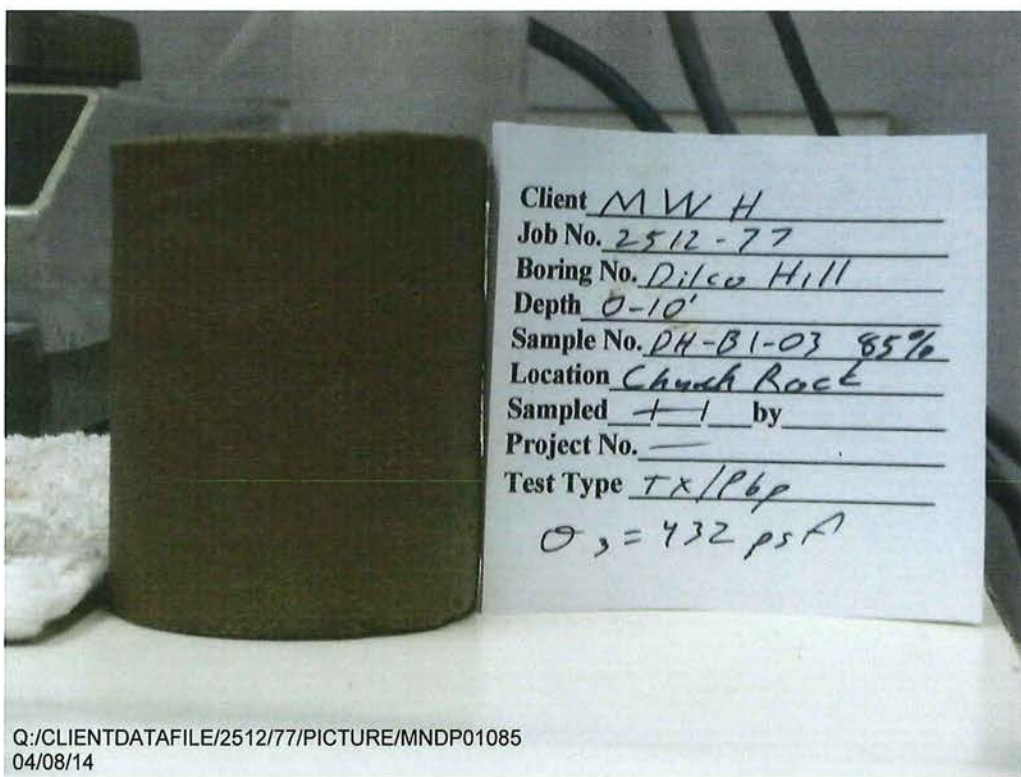 Client MWH
Job No. 2512-77
Boring No. Dilco Hill
Depth 0-10'
Sample No. DH-B1-03 85%
Location Church Rock
Sampled / / by
Project No. —
Test Type TX/Pbp
σ3 = 432 psf
Q:/CLIENTDATAFILE/2512/77/PICTURE/MNDP01085
04/08/14